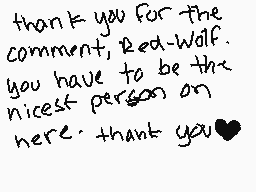 thank you for the
comment, Red-Wolf.
you have to be the
nicest person on
here. thank you♥